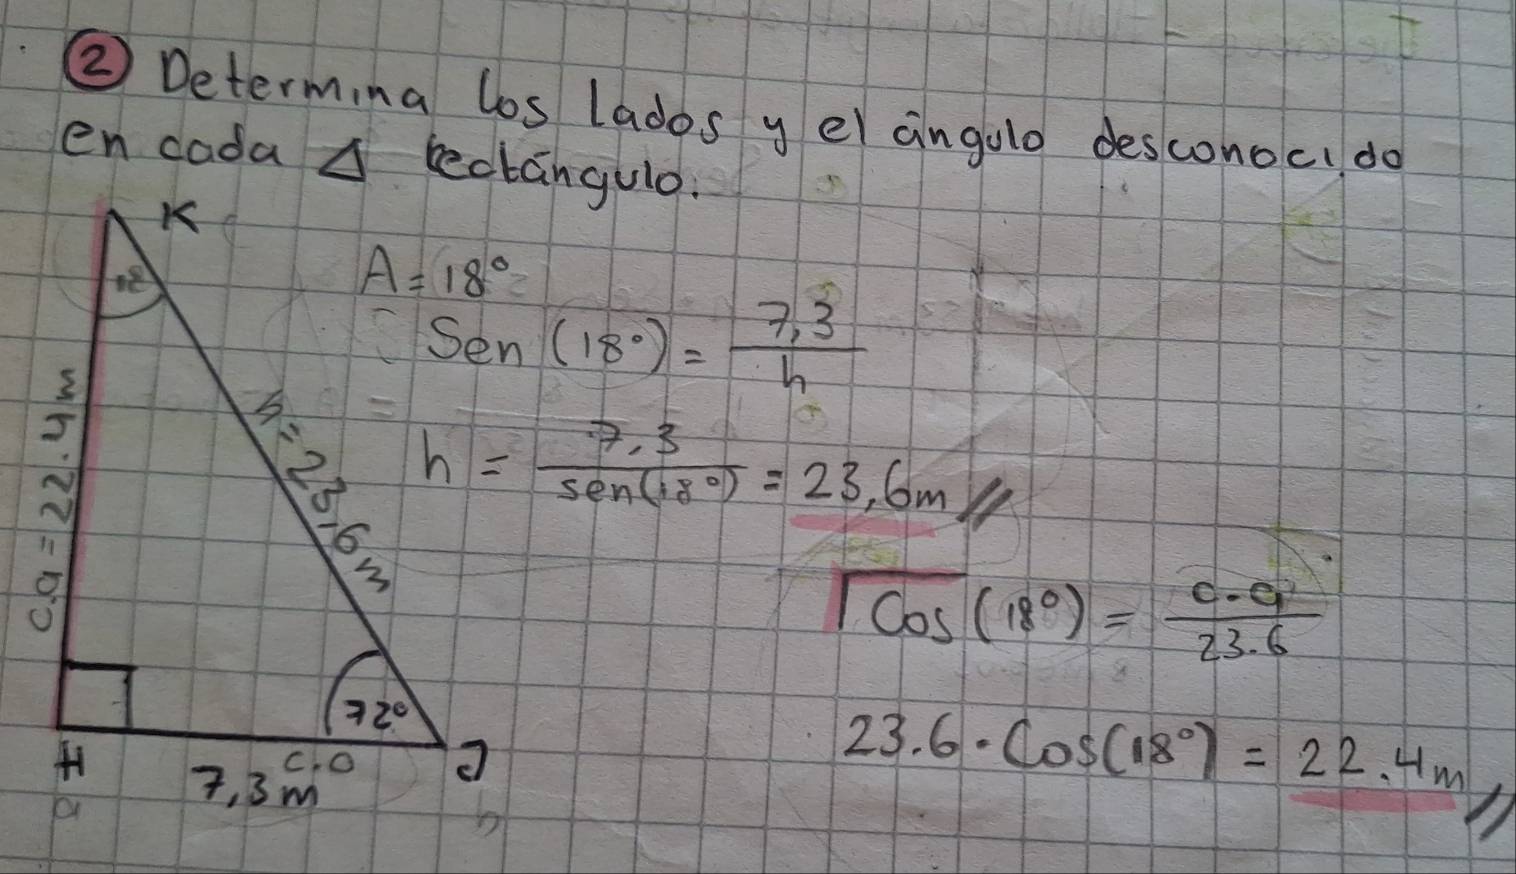 2 Determina los lados y el ángulo desconocido
en cada △ rectángulo.
K
18
A = 18°
Sen (18°) = 7,3 / h
h = 7,3 / sen(18°) = 23,6m //
c.a = 22.4m
h = 23,6m
Cos (18°) = c.a / 23.6
23.6 · Cos(18°) = 22.4m //
72°
H
c.o
J
7,3m
a